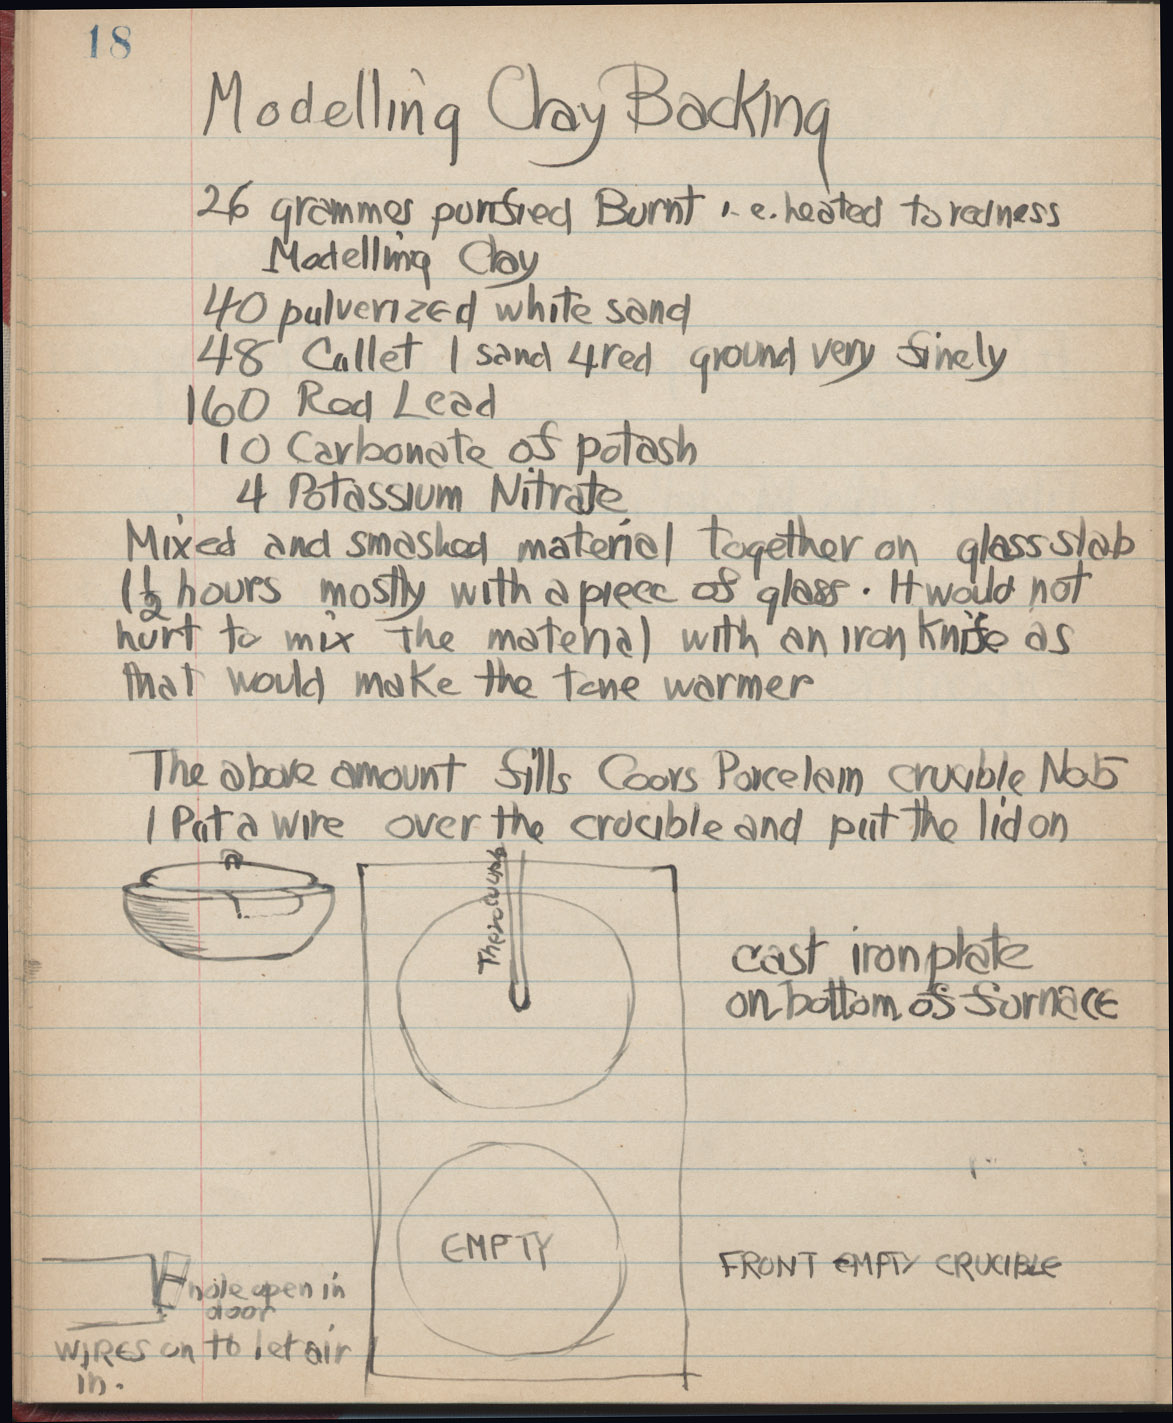 18
Modelling Clay Backing
26 grammes purified Burnt i.e. heated to redness
Modelling Clay
40 pulverized white sand
48 Cullet 1 sand 4 red ground very finely
160 Red Lead
10 Carbonate of potash
4 Potassium Nitrate
Mixed and smashed material together on glass slab
1½ hours mostly with a piece of glass. It would not
hurt to mix the material with an iron knife as
that would make the tone warmer
The above amount fills Coors Porcelain crucible No 5
1 Put a wire over the crucible and put the lid on
cast iron plate
on bottom of furnace
EMPTY
FRONT EMPTY CRUCIBLE
hole open in
door
WIRES on to let air
in.